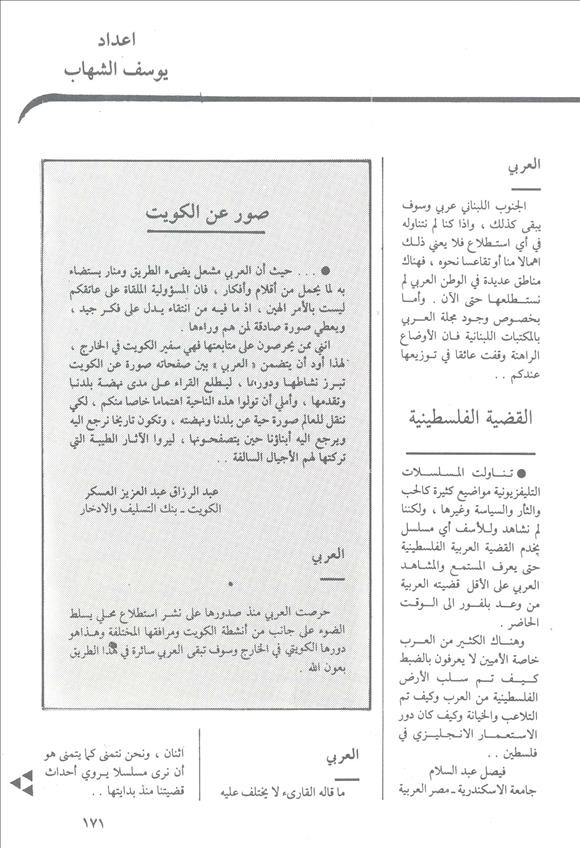 اعداد
يوسف الشهاب
العربي
الجنوب اللبناني عربي وسوف
يبقى كذلك ، واذا كنا لم نتناوله
في أي استطلاع فلا يعني ذلك
اهمالا منا أو تقاعسا نحوه ، فهناك
مناطق عديدة في الوطن العربي لم
نستطلعها حتى الآن . وأما
بخصوص وجود مجلة العربي
بالمكتبات اللبنانية فان الأوضاع
الراهنة وقفت عائقا في توزيعها
عندكم ..
القضية الفلسطينية
● تناولت المسلسلات
التليفزيونية مواضيع كثيرة كالحب
والثأر والسياسة وغيرها ، ولكننا
لم نشاهد وللأسف أي مسلسل
يخدم القضية العربية الفلسطينية
حتى يعرف المستمع والمشاهد
العربي على الأقل قضيته العربية
من وعد بلفور الى الوقت
الحاضر .
وهناك الكثير من العرب
خاصة الأميين لا يعرفون بالضبط
كيف تم سلب الأرض
الفلسطينية من العرب وكيف تم
التلاعب والخيانة وكيف كان دور
الاستعمار الانجليزي في
فلسطين ..
فيصل عبد السلام
جامعة الاسكندرية ـ مصر العربية
صور عن الكويت
● ... حيث أن العربي مشعل يضىء الطريق ومنار يستضاء
به لما يحمل من أقلام وأفكار ، فان المسؤولية الملقاة على عاتقكم
ليست بالأمر الهين ، اذ ما فيه من انتقاء يدل على فكر جيد ،
ويعطي صورة صادقة لمن هم وراءها .
انني ممن يحرصون على متابعتها فهي سفير الكويت في الخارج ،
لهذا أود أن يتضمن « العربي » بين صفحاته صورة عن الكويت
تبرز نشاطها ودورها ، ليطلع القراء على مدى نهضة بلدنا
وتقدمها ، وأملي أن تولوا هذه الناحية اهتماما خاصا منكم ، لكي
ننقل للعالم صورة حية عن بلدنا ونهضته ، وتكون تاريخا نرجع اليه
ويرجع اليه أبناؤنا حين يتصفحونها ، ليروا الآثار الطيبة التي
تركتها لهم الأجيال السالفة ..
عبد الرزاق عبد العزيز العسكر
الكويت ـ بنك التسليف والادخار
العربي
حرصت العربي منذ صدورها على نشر استطلاع محلي يسلط
الضوء على جانب من أنشطة الكويت ومرافقها المختلفة وهذا هو
دورها الكويتي في الخارج وسوف تبقى العربي سائرة في هذا الطريق
بعون الله .
العربي
ما قاله القارىء لا يختلف عليه
اثنان ، ونحن نتمنى كما يتمنى هو
أن نرى مسلسلا يروي أحداث
قضيتنا منذ بدايتها ..
١٧١